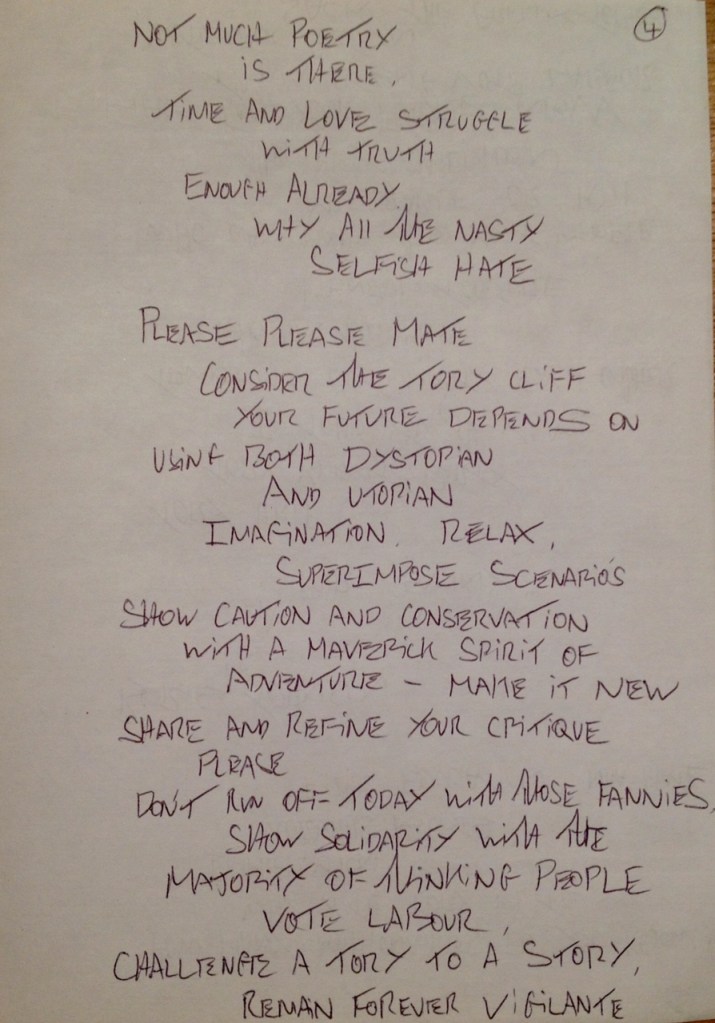 4
NOT MUCH POETRY
IS THERE.
TIME AND LOVE STRUGGLE
WITH TRUTH
ENOUGH ALREADY
WHY All THE NASTY
SELFISH HATE
PLEASE PLEASE MATE
CONSIDER THE TORY CLIFF
YOUR FUTURE DEPENDS ON
USING BOTH DYSTOPIAN
AND UTOPIAN
IMAGINATION. RELAX,
SUPERIMPOSE SCENARIO'S
SHOW CAUTION AND CONSERVATION
WITH A MAVERICK SPIRIT OF
ADVENTURE - MAKE IT NEW
SHARE AND REFINE YOUR CRITIQUE
PLEASE
DON'T RUN OFF TODAY WITH THOSE FANNIES,
SHOW SOLIDARITY WITH THE
MAJORITY OF THINKING PEOPLE
VOTE LABOUR,
CHALLENGE A TORY TO A STORY,
REMAIN FOREVER VIGILANTE